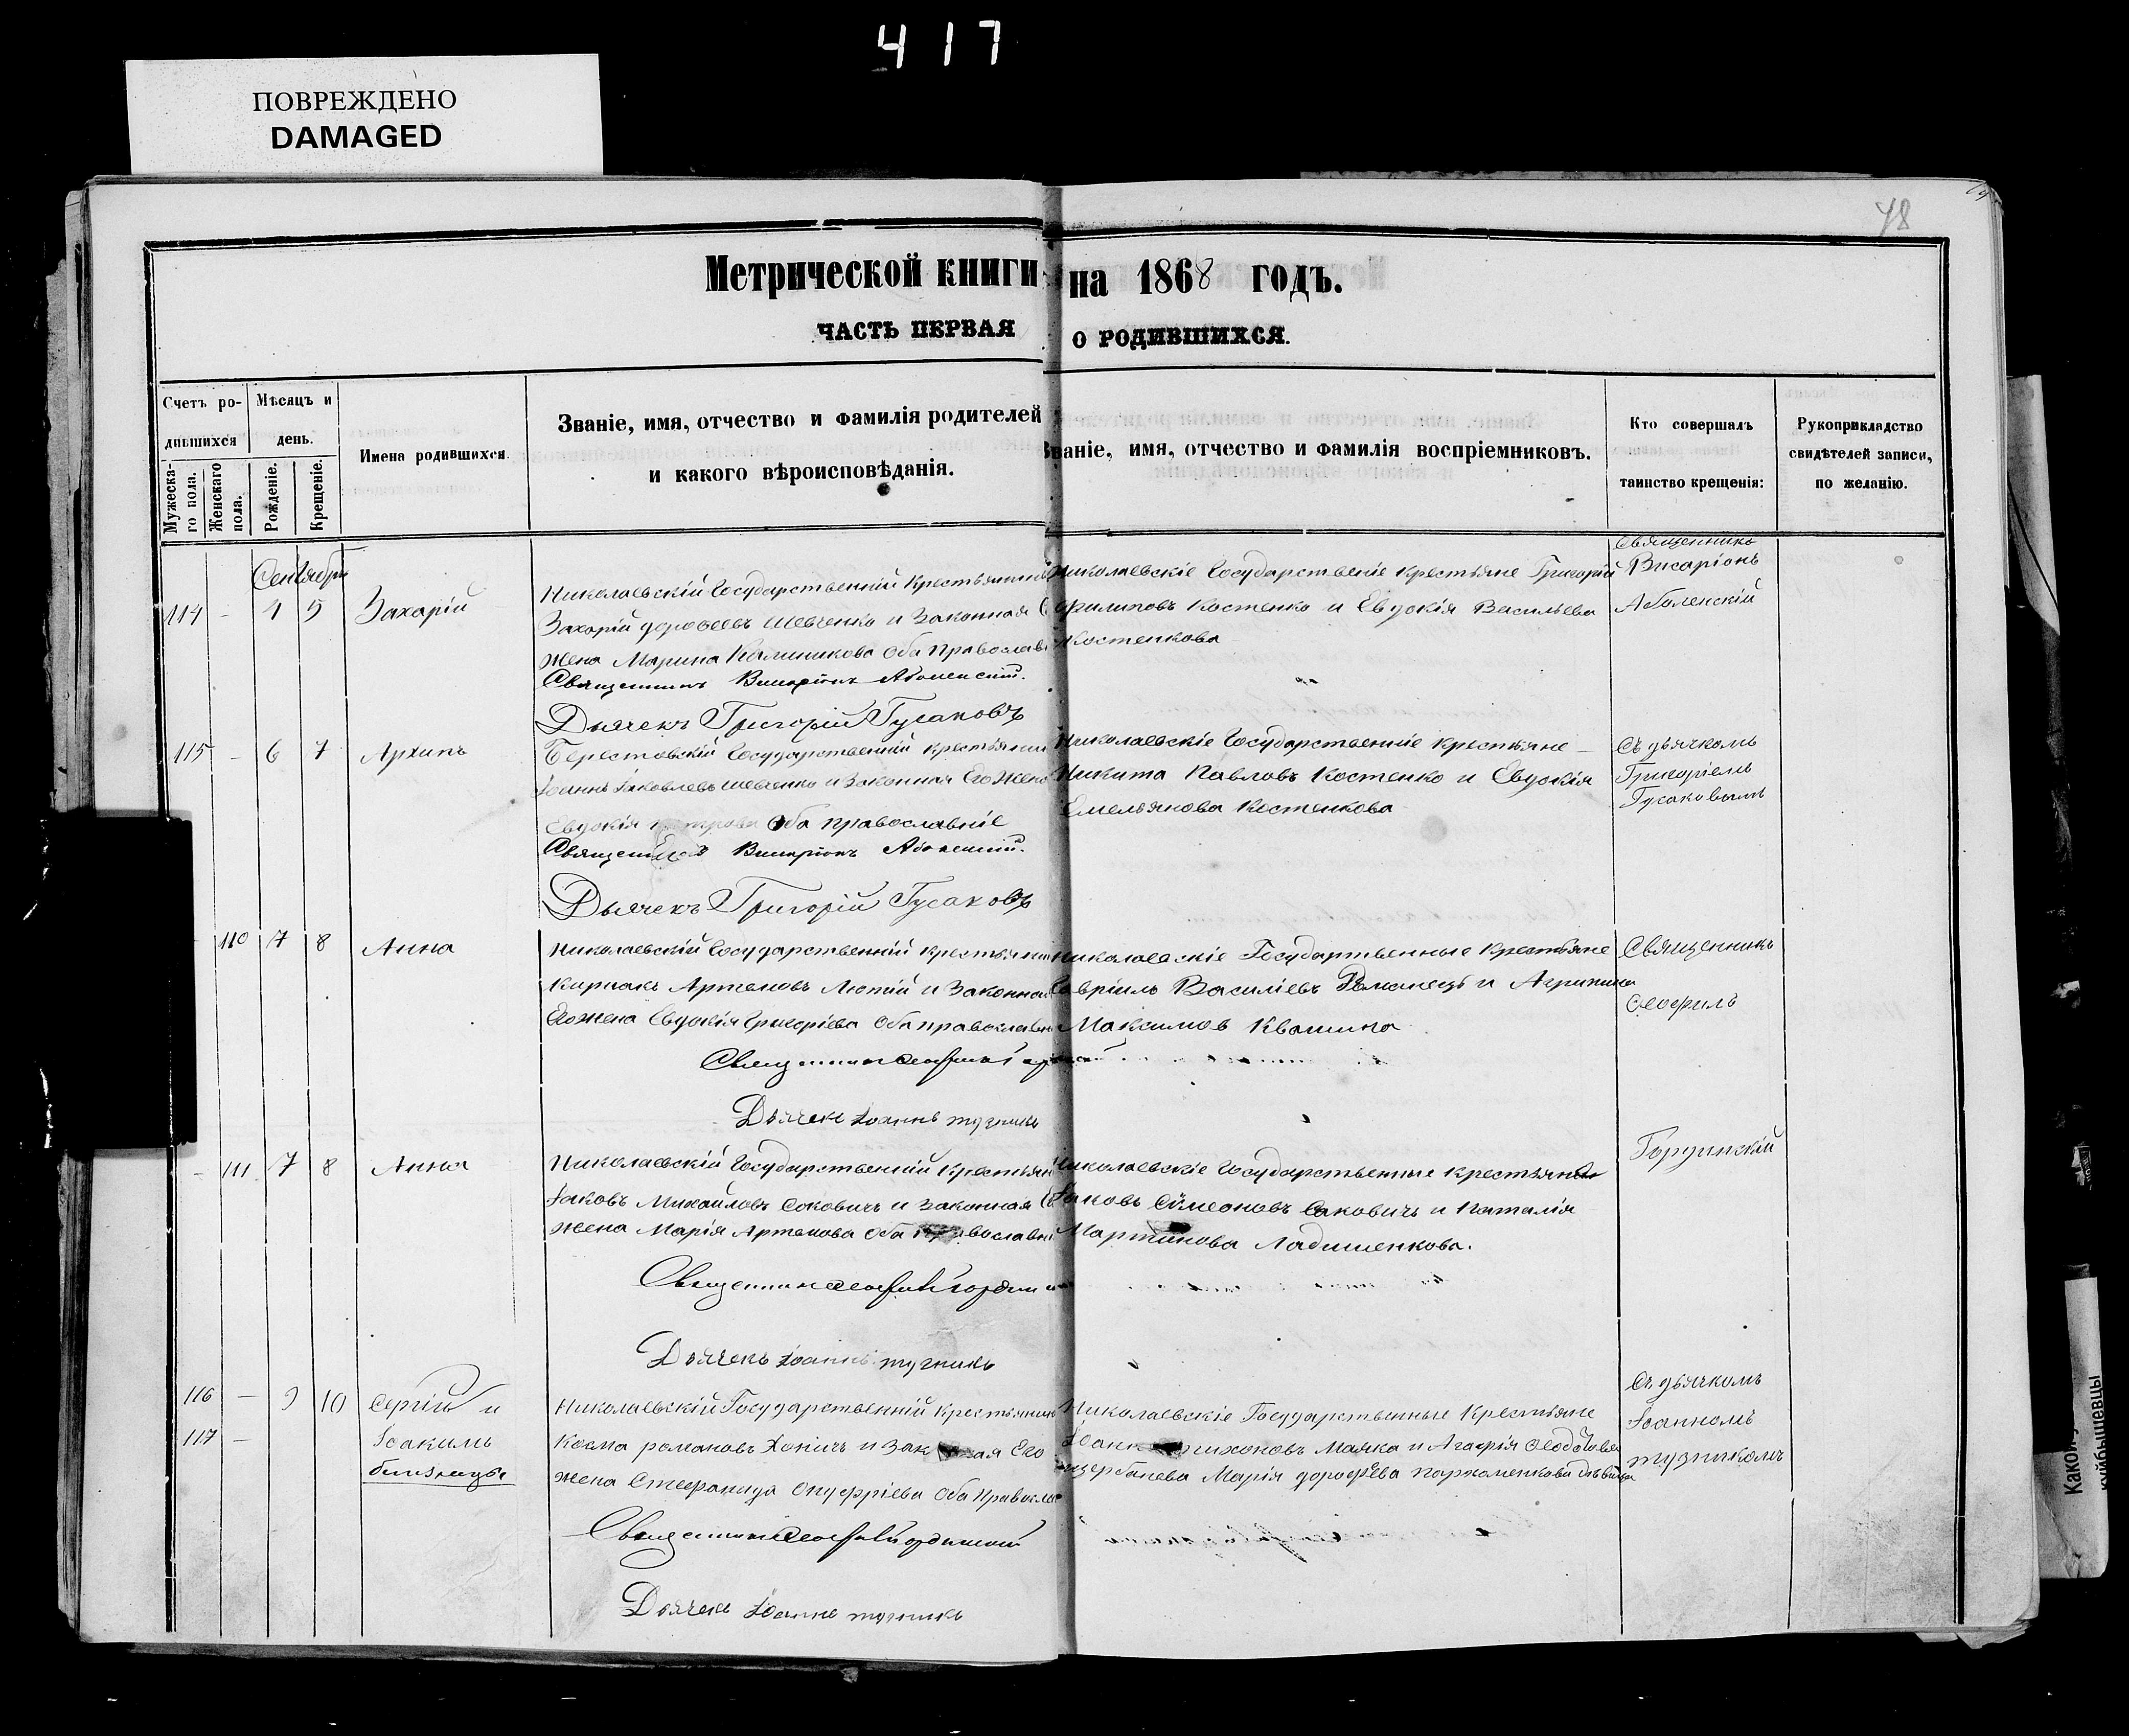 417
ПОВРЕЖДЕНО
DAMAGED
48
Метрической книги на 1868 годъ.
ЧАСТЬ ПЕРВАЯ О РОДИВШИХСЯ.
Счетъ родившихся
Мѣсяцъ и день.
Мужескаго пола.
Женскаго пола.
Рожденіе.
Крещеніе.
Имена родившихся
Званіе, имя, отчество и фамилія родителей
и какого вѣроисповѣданія.
Званіе, имя, отчество и фамилія воспріемниковъ.
Кто совершалъ
таинство крещенія:
Рукоприкладство
свидѣтелей записи,
по желанію.
Сентября
114 - 4 5 Захарій
Николаевскій Государственній Крестьянинъ
Захарій дорофеевъ Шевченко и Законная
жена Марина Калиникова Оба Православ
Священникъ Висаріонъ Аболенскій.
Дьячекъ Григорій Гусаковъ
Николаевскіе Государствение Крестьяне Григорій
Филиповъ Костенко и Евдокія Васильева
Костенкова
Священникъ
Висаріонъ
Аболенскій
115 - 6 7 Архипъ
Берестовскій Государственній крестьянин
Іоаннъ Іаковлевъ Шевченко и Законная Его Жена
Евдокія Оба православніе
Священникъ Висаріонъ Аболенскій.
Дьячекъ Григорій Гусаковъ
Николаевскіе Государственніе крестьяне
Никита Павловъ Костенко и Евдокія
Емельянова Костенкова
Съ дьячкомъ
Григоріемъ
Гусаковымъ
110 7 8 Анна
Николаевскій Государственній крестьянин
Киріакъ Артемовъ Лютій и Законная
Его жена Евдокія Григоріева Оба православн
Священникъ Феофилъ
Дьячекъ Іоаннъ тузникъ
Николаевскіе Государтвенные Крестьяне
Гавріилъ Василіевъ и Агрипина
Максимов Квашина
Священникъ
Феофилъ
- 111 7 8 Анна
Николаевскій Государственній Крестьян
Іаковъ Михайловъ Соковичъ и Законная
жена Марія Артемова Оба Православн
Священникъ Феофилъ Гордин
Дьячекъ Іоаннъ тузникъ
Николаевскіе Государственные крестьяне
Іаковъ Симеоновъ Саковичъ и Наталія
Мартинова Ладишенкова.
Гординскій
116 - 9 10 Сергій и
117 - Іоакимъ
близнецы
Николаевскій Государственній крестьянинъ
Косма романовъ и Законная Его
жена Стефанида Онуфріева Оба Правосл
Священникъ Феофилъ Гординскій
Дьячекъ Іоаннъ тузникъ
Николаевскіе Государственные Крестьяне
Іоанн тихоновъ Маяка и Агафія Феодотова
щербанева Марія дорофѣева пархоменкова дѣвица
Съ дьячкомъ
Іоанномъ
тузникомъ